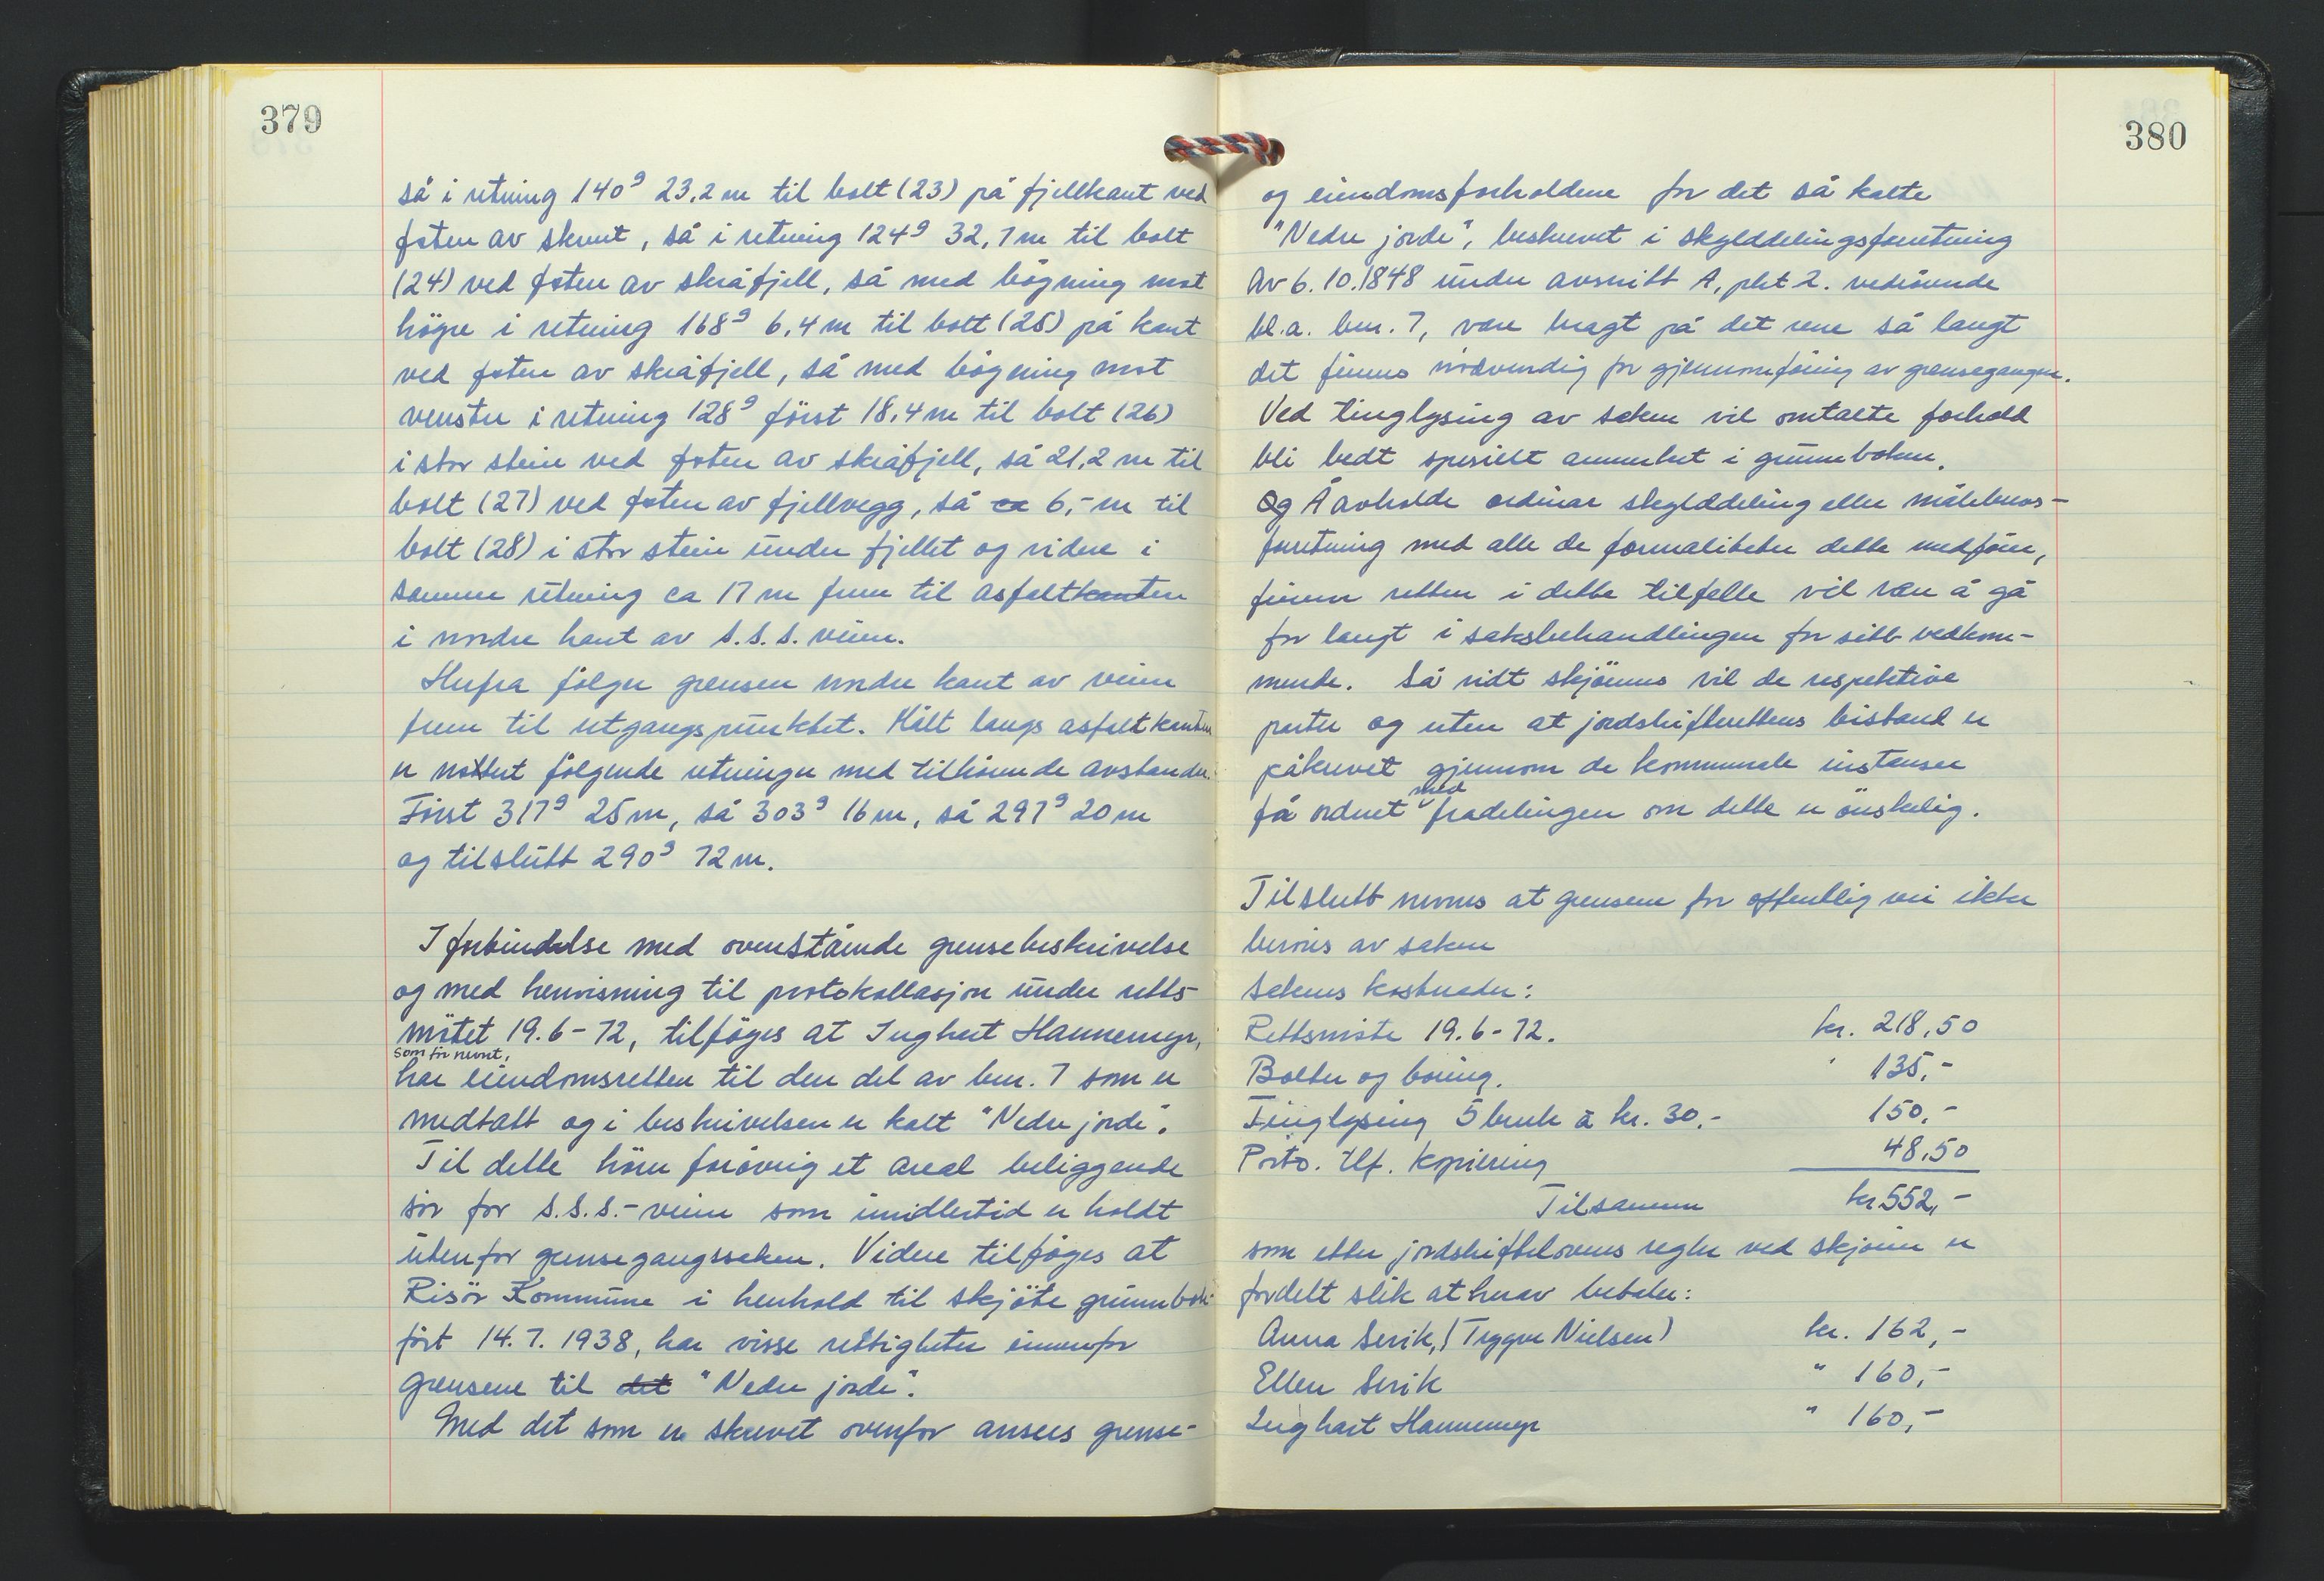 379
så i retning 140g 23,2 m til bolt (23) på fjellkant ved
foten av skrent, så i retning 124g 32,7 m til bolt
(24) ved foten av skråfjell, så med bögning mot
högre i retning 168g 6,4 m til bolt (25) på kant
ved foten av skråfjell, så med bögning mot
venstre i retning 128g först 18,4 m til bolt (26)
i stor stein ved foten av skråfjell, så 21,2 m til
bolt (27) ved foten av fjellvegg, så ca 6,- m til
bolt (28) i stor stein under fjellet og videre i
samme retning ca 17 m frem til asfaltkanten
i nordre kant av S.S.S. veien.
Herfra fölger grensen nordre kant av veien
frem til utgangspunktet. Målt langs asfaltkanten
er nottert fölgende retninger med tilhörende avstander.
Först 317g 25 m, så 303g 16 m, så 297g 20 m
og tilslutt 290g 72 m.
I forbindelse med ovenstående grensebeskrivelse
og med henvisning til protokollasjon under retts-
mötet 19.6-72, tilföges at Inghart Hannemyr,
som för nevnt,
har eiendomsretten til den del av bnr. 7 som er
medtatt og i beskrivelsen er kalt "Nedre jorde".
Til dette hörer forövrig et areal beliggende
sör for S.S.S.-veien som imidlertid er holdt
utenfor grensegangssaken. Videre tilföges at
Risör Kommune i henhold til skjöte grunnbok-
fört 14.7.1938, har visse rettigheter innenfor
grensene til det "Nedre jorde".
Med det som er skrevet ovenfor ansees grense-
380
og eiendomsforholdene for det så kalte
"Nedre jorde", beskrevet i skylddelingsforretning
av 6.10.1848 under avsnitt A, pkt 2. vedrörende
bl.a. bnr. 7, være bragt på det rene så langt
det finnes nödvendig for gjennomföring av grensegangen.
Ved tinglysing av saken vil omtalte forhold
bli bedt spesielt anmerket i grunnboken.
Og Å avholde ordinær skylddeling eller målebrevs-
forretning med alle de formaliteter dette medförer,
finner retten i dette tilfelle vil være å gå
for langt i saksbehandlingen for sitt vedkom-
mende. Så vidt skjönnes vil de respektive
parter og uten at jordskifterettens bistand er
påkrevet gjennom de kommunale instanser
få ordnet med fradelingen om dette er önskelig.
Tilslutt nevnes at grensene for offentlig vei ikke
beröres av saken
Sakens kostnader:
Rettsmöte 19.6-72. kr. 218,50
Bolter og boring. " 135,-
Tinglysing 5 bruk à kr. 30,- 150,-
Porto. tlf. kopiering 48,50
Tilsammen kr 552,-
som etter jordskiftelovens regler ved skjönn er
fordelt slik at herav betaler:
Anna Serik, (Trygve Nielsen) kr. 162,-
Ellen Serik " 160,-
Inghart Hannemyr " 160,-